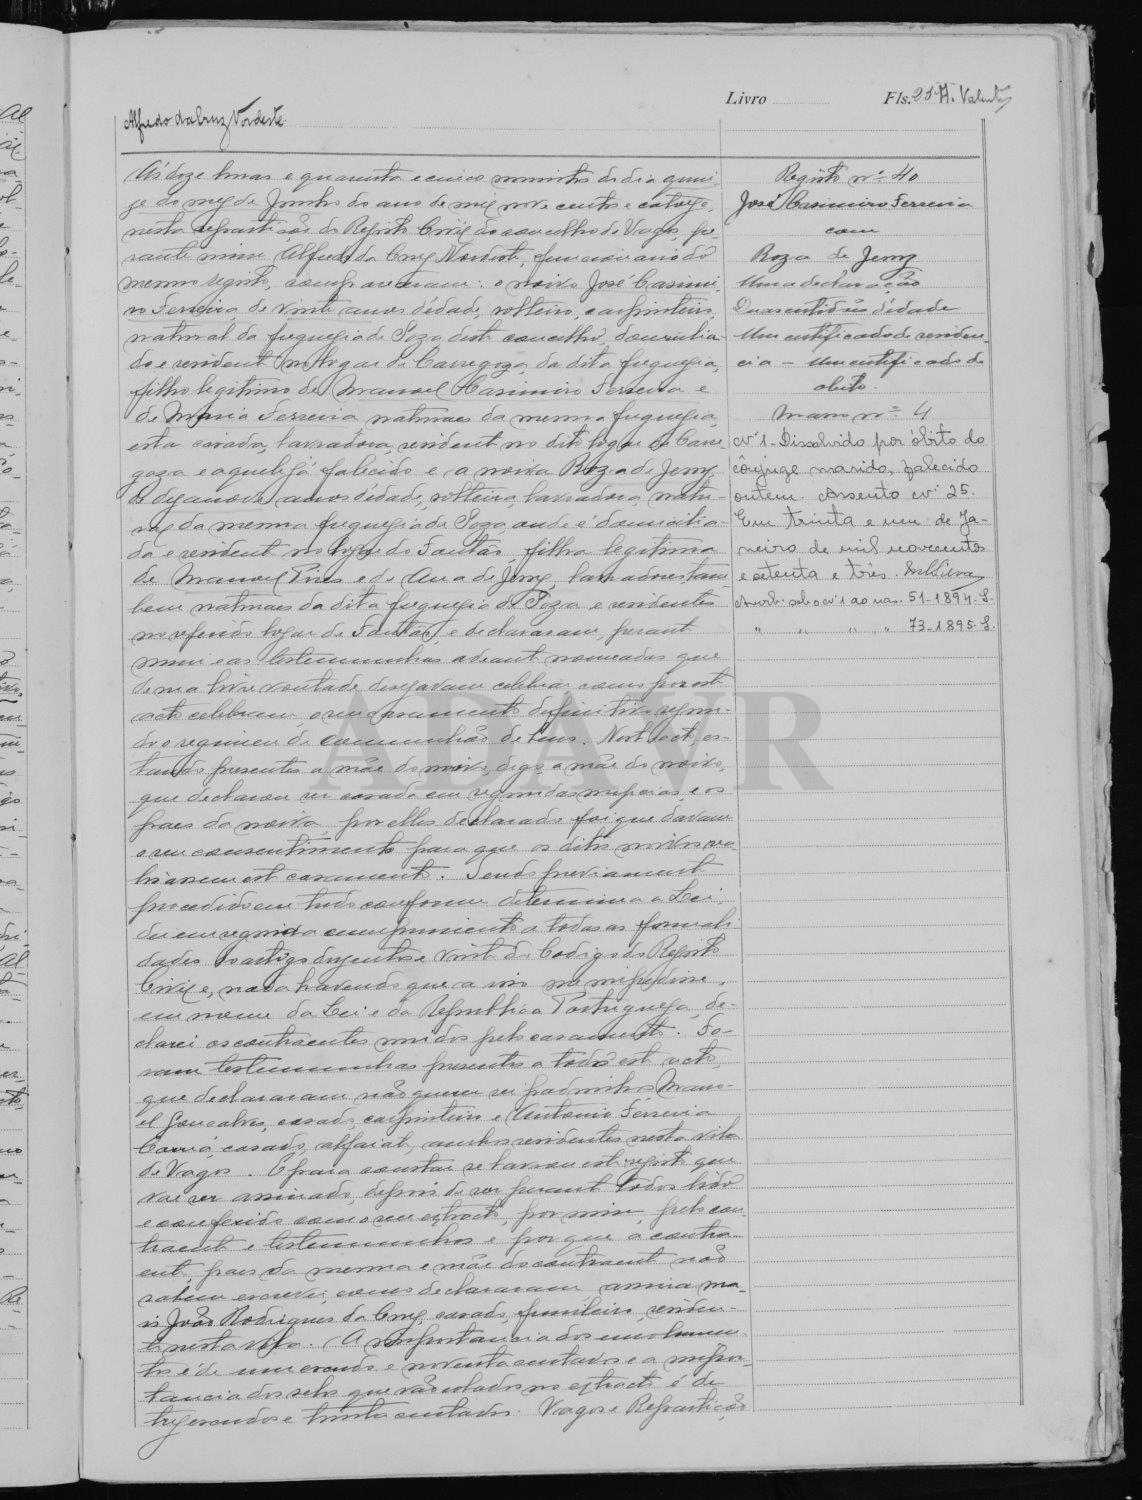 Livro Fls. 25 A. Valente
Alfredo da Cruz Nordeste
Ás doze horas e quarenta e cinco minutos do dia quin-
ze do mez de Junho do ano de mil nove centos e catorze,
nesta repartição do Registo Civil do concelho de Vagos, pe-
rante mim Alfredo da Cruz Nordeste, funcionario do
mesmo registo, compareceram: o noivo José Casimi-
ro Ferreira de vinte anos d'edade, solteiro, carpinteiro,
natural da freguezia de Soza deste concelho, domicilia-
do e residente no logar de Carregoza, da dita freguezia,
filho legitimo de Manoel Casimiro Ferreira e
de Maria Ferreira naturaes da mesma freguezia,
esta casada, lavradora, residente no dito logar de Carre-
goza e aquele já falecido e a noiva Roza de Jesuz
de dezanove anos d'edade, solteira, lavradora, natu-
ral da mesma freguezia de Soza, onde é domicilia-
da e residente no logar do Fontão filha legitima
de Manoel Pires e de Ana de Jesuz, lavradores tam
bem naturaes da dita freguezia de Soza e residentes
no referido logar de Fontão, e declararam, perante
mim e as testemunhas adeante nomeadas que
de sua livre vontade desejavam celebrar como por este
acto celebram, o seu casamento definitivo segun-
do o regimen de communhão de bens. Neste acto, es-
tando presentes a mãe da noiva, digo, a mãe do noivo,
que declarou ser casada em segundas nupcias, e os
paes da noiva, por elles declarado foi que davam
o seu consentimento para que os ditos noivos rea-
lisassem este casamento. Sendo previamente
procedido em tudo conforme determina a Lei,
dei em seguida cumprimento a todas as formali
dades do artigo duzentos e vinte do Codigo do Registo
Civil e, nada havendo que a isso me impedisse,
em nome da Lei e da Republica Portugueza, de-
clarei os contraentes unidos pelo casamento. Fo-
ram testemunhas presentes a todo este acto,
que declararam não querer ser padrinhos, Mano-
el Gonçalves, casado, carpinteiro e Antonio Ferreira
casado, alfaiate, ambos residentes nesta vila
de Vagos. E para constar se lavrou este registo que
vae ser assinado, depois de ser perante todos lido
e conferido com o seu extracto, por mim, pelo con-
traente e testemunhas e por que a contra-
ente, paes da mesma e mãe do contraente não
sabem escrever, como declararam, assina ma-
is João Rodrigues da Cruz, casado, funileiro, residen-
te nesta vila. A importancia dos emolumen-
tos é de um escudo e noventa centavos e a impor-
tancia dos selos que vão colados no extracto é de
trez escudos e trinta centavos. Vagos e Repartição
Registo nº 40
José Casimiro Ferreira
com
Roza de Jesuz
Uma declaração
Duas certidões d'edade
Um certificado de residen-
cia – Um certificado de
obito.
Maço nº 4
Nº 1 - Dissolvido por óbito do
cônjuge marido, falecido
ontem. Assento nº 25.
Em trinta e um de Ja-
neiro de mil novecentos
e setenta e três. MSilva
Averb. sob o nº 1 ao nas. 51-1894-S.
" " " " 73-1895-S.
ADAVR